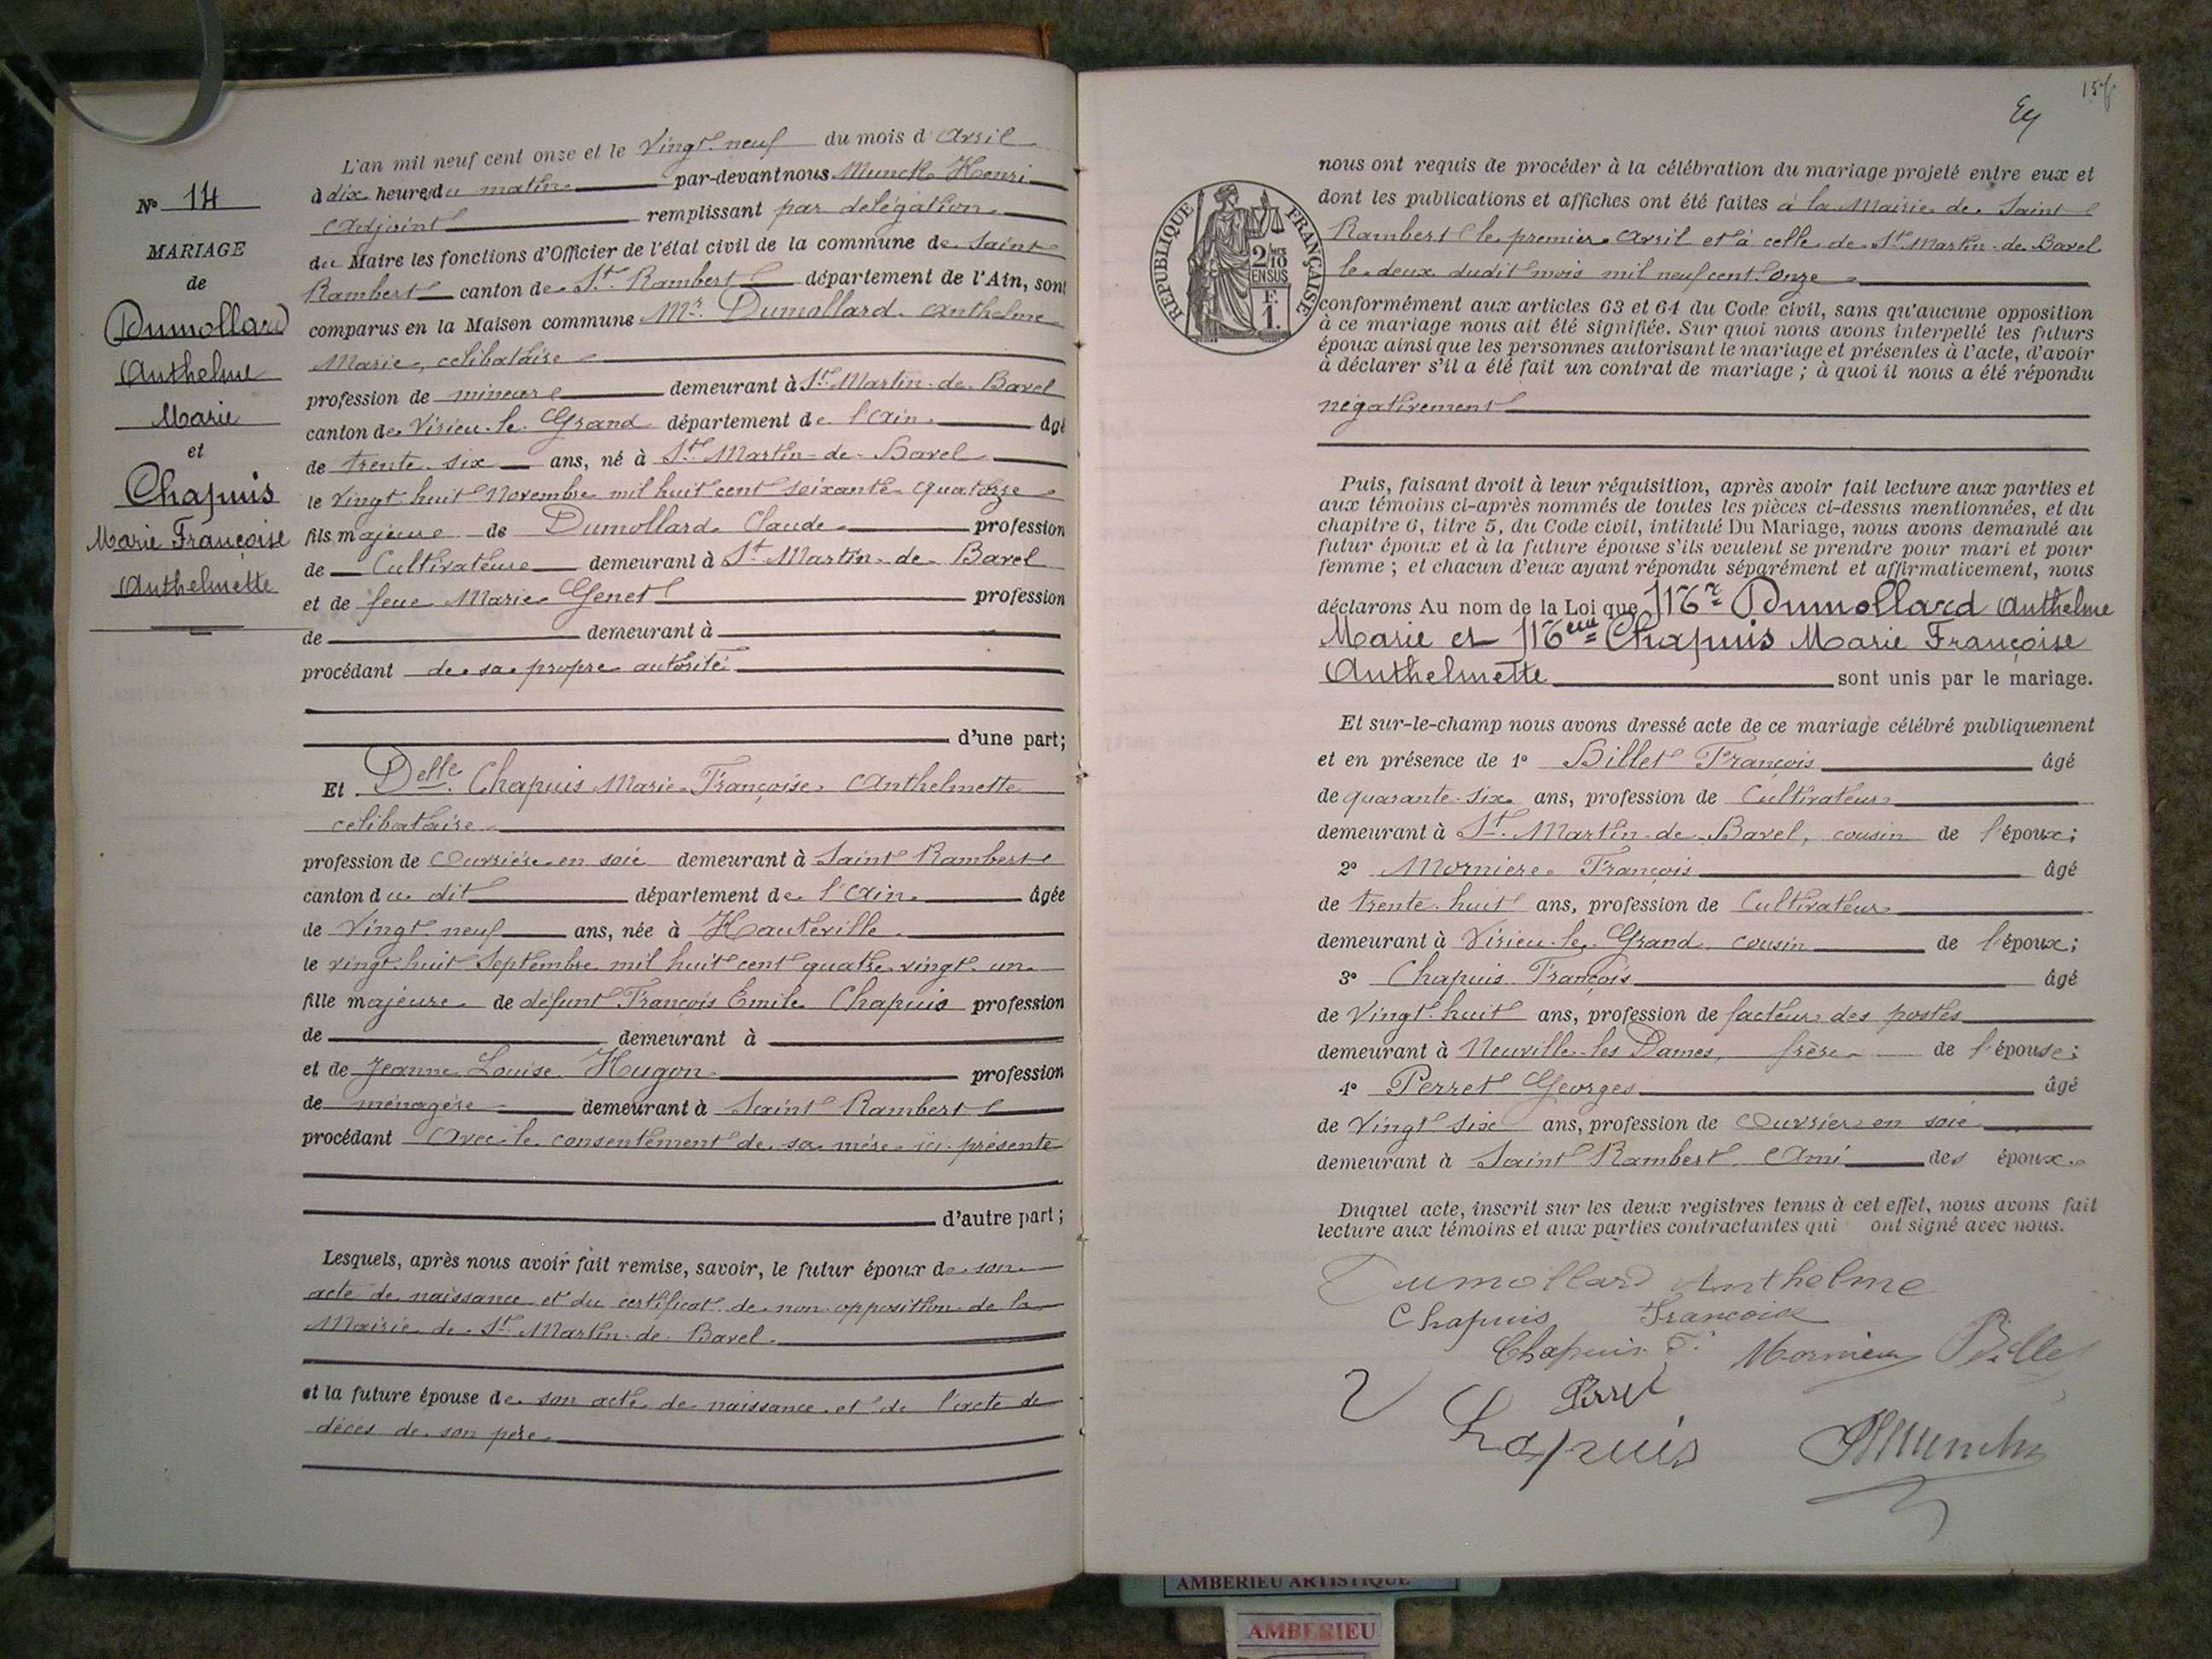 N° 14
MARIAGE
de
Dumollard
Anthelme
Marie
et
Chapuis
Marie Françoise
Anthelmette
L'an mil neuf cent onze et le vingt-neuf du mois d'Avril
à dix heures du matin par-devant nous Munch Henri
Adjoint remplissant par délégation
du Maire les fonctions d'Officier de l'état civil de la commune de Saint
Rambert canton de St. Rambert département de l'Ain, sont
comparus en la Maison commune Mr. Dumollard Anthelme
Marie, célibataire
profession de mineur demeurant à St Martin-de-Bavel
canton de Virieu-le-Grand département de l'Ain âgé
de trente-six ans, né à St Martin-de-Bavel
le vingt huit Novembre mil huit cent soixante quatorze
fils majeur de Dumollard Claude profession
de Cultivateur demeurant à St Martin-de-Bavel
et de feue Marie Genet profession
de demeurant à
procédant de sa propre autorité
d'une part;
Et Delle Chapuis Marie Françoise Anthelmette
célibataire
profession de ouvrière en soie demeurant à Saint Rambert
canton du dit département de l'Ain âgée
de vingt-neuf ans, née à Hauteville
le vingt-huit Septembre mil huit cent quatre-vingt-un
fille majeure de défunt François Emile Chapuis profession
de demeurant à
et de Jeanne Louise Hugon profession
de ménagère demeurant à Saint Rambert
procédant avec le consentement de sa mère ici présente
d'autre part;
Lesquels, après nous avoir fait remise, savoir, le futur époux de son
acte de naissance et du certificat de non-opposition de la
Mairie de St Martin-de-Bavel
et la future épouse de son acte de naissance et de l'acte de
décès de son père
RÉPUBLIQUE FRANÇAISE
2/10
EN SUS
F.
1.
nous ont requis de procéder à la célébration du mariage projeté entre eux et
dont les publications et affiches ont été faites à la Mairie de Saint
Rambert le premier Avril et à celle de St Martin-de-Bavel
le deux dudit mois mil neuf cent onze
conformément aux articles 63 et 64 du Code civil, sans qu'aucune opposition
à ce mariage nous ait été signifiée. Sur quoi nous avons interpellé les futurs
époux ainsi que les personnes autorisant le mariage et présentes à l'acte, d'avoir
à déclarer s'il a été fait un contrat de mariage ; à quoi il nous a été répondu
négativement
Puis, faisant droit à leur réquisition, après avoir fait lecture aux parties et
aux témoins ci-après nommés de toutes les pièces ci-dessus mentionnées, et du
chapitre 6, titre 5, du Code civil, intitulé Du Mariage, nous avons demandé au
futur époux et à la future épouse s'ils veulent se prendre pour mari et pour
femme ; et chacun d'eux ayant répondu séparément et affirmativement, nous
déclarons Au nom de la Loi que Mr Dumollard Anthelme
Marie et Melle Chapuis Marie Françoise
Anthelmette sont unis par le mariage.
Et sur-le-champ nous avons dressé acte de ce mariage célébré publiquement
et en présence de 1° Billet François âgé
de quarante-six ans, profession de Cultivateur
demeurant à St. Martin-de-Bavel, cousin de l'époux;
2° Morniere François âgé
de trente-huit ans, profession de Cultivateur
demeurant à Virieu-le-Grand cousin de l'époux;
3° Chapuis François âgé
de vingt-huit ans, profession de facteur des postes
demeurant à Neuville-les-Dames, frère de l'épouse;
4° Perret Georges âgé
de vingt six ans, profession de ouvrier en soie
demeurant à Saint Rambert Ami des époux.
Duquel acte, inscrit sur les deux registres tenus à cet effet, nous avons fait
lecture aux témoins et aux parties contractantes qui ont signé avec nous.
Dumollard Anthelme
Chapuis Francoise
Chapuis F. Morniere Billet
Perret
Chapuis
HMunch
AMBERIEU ARTISTIQUE
AMBERIEU